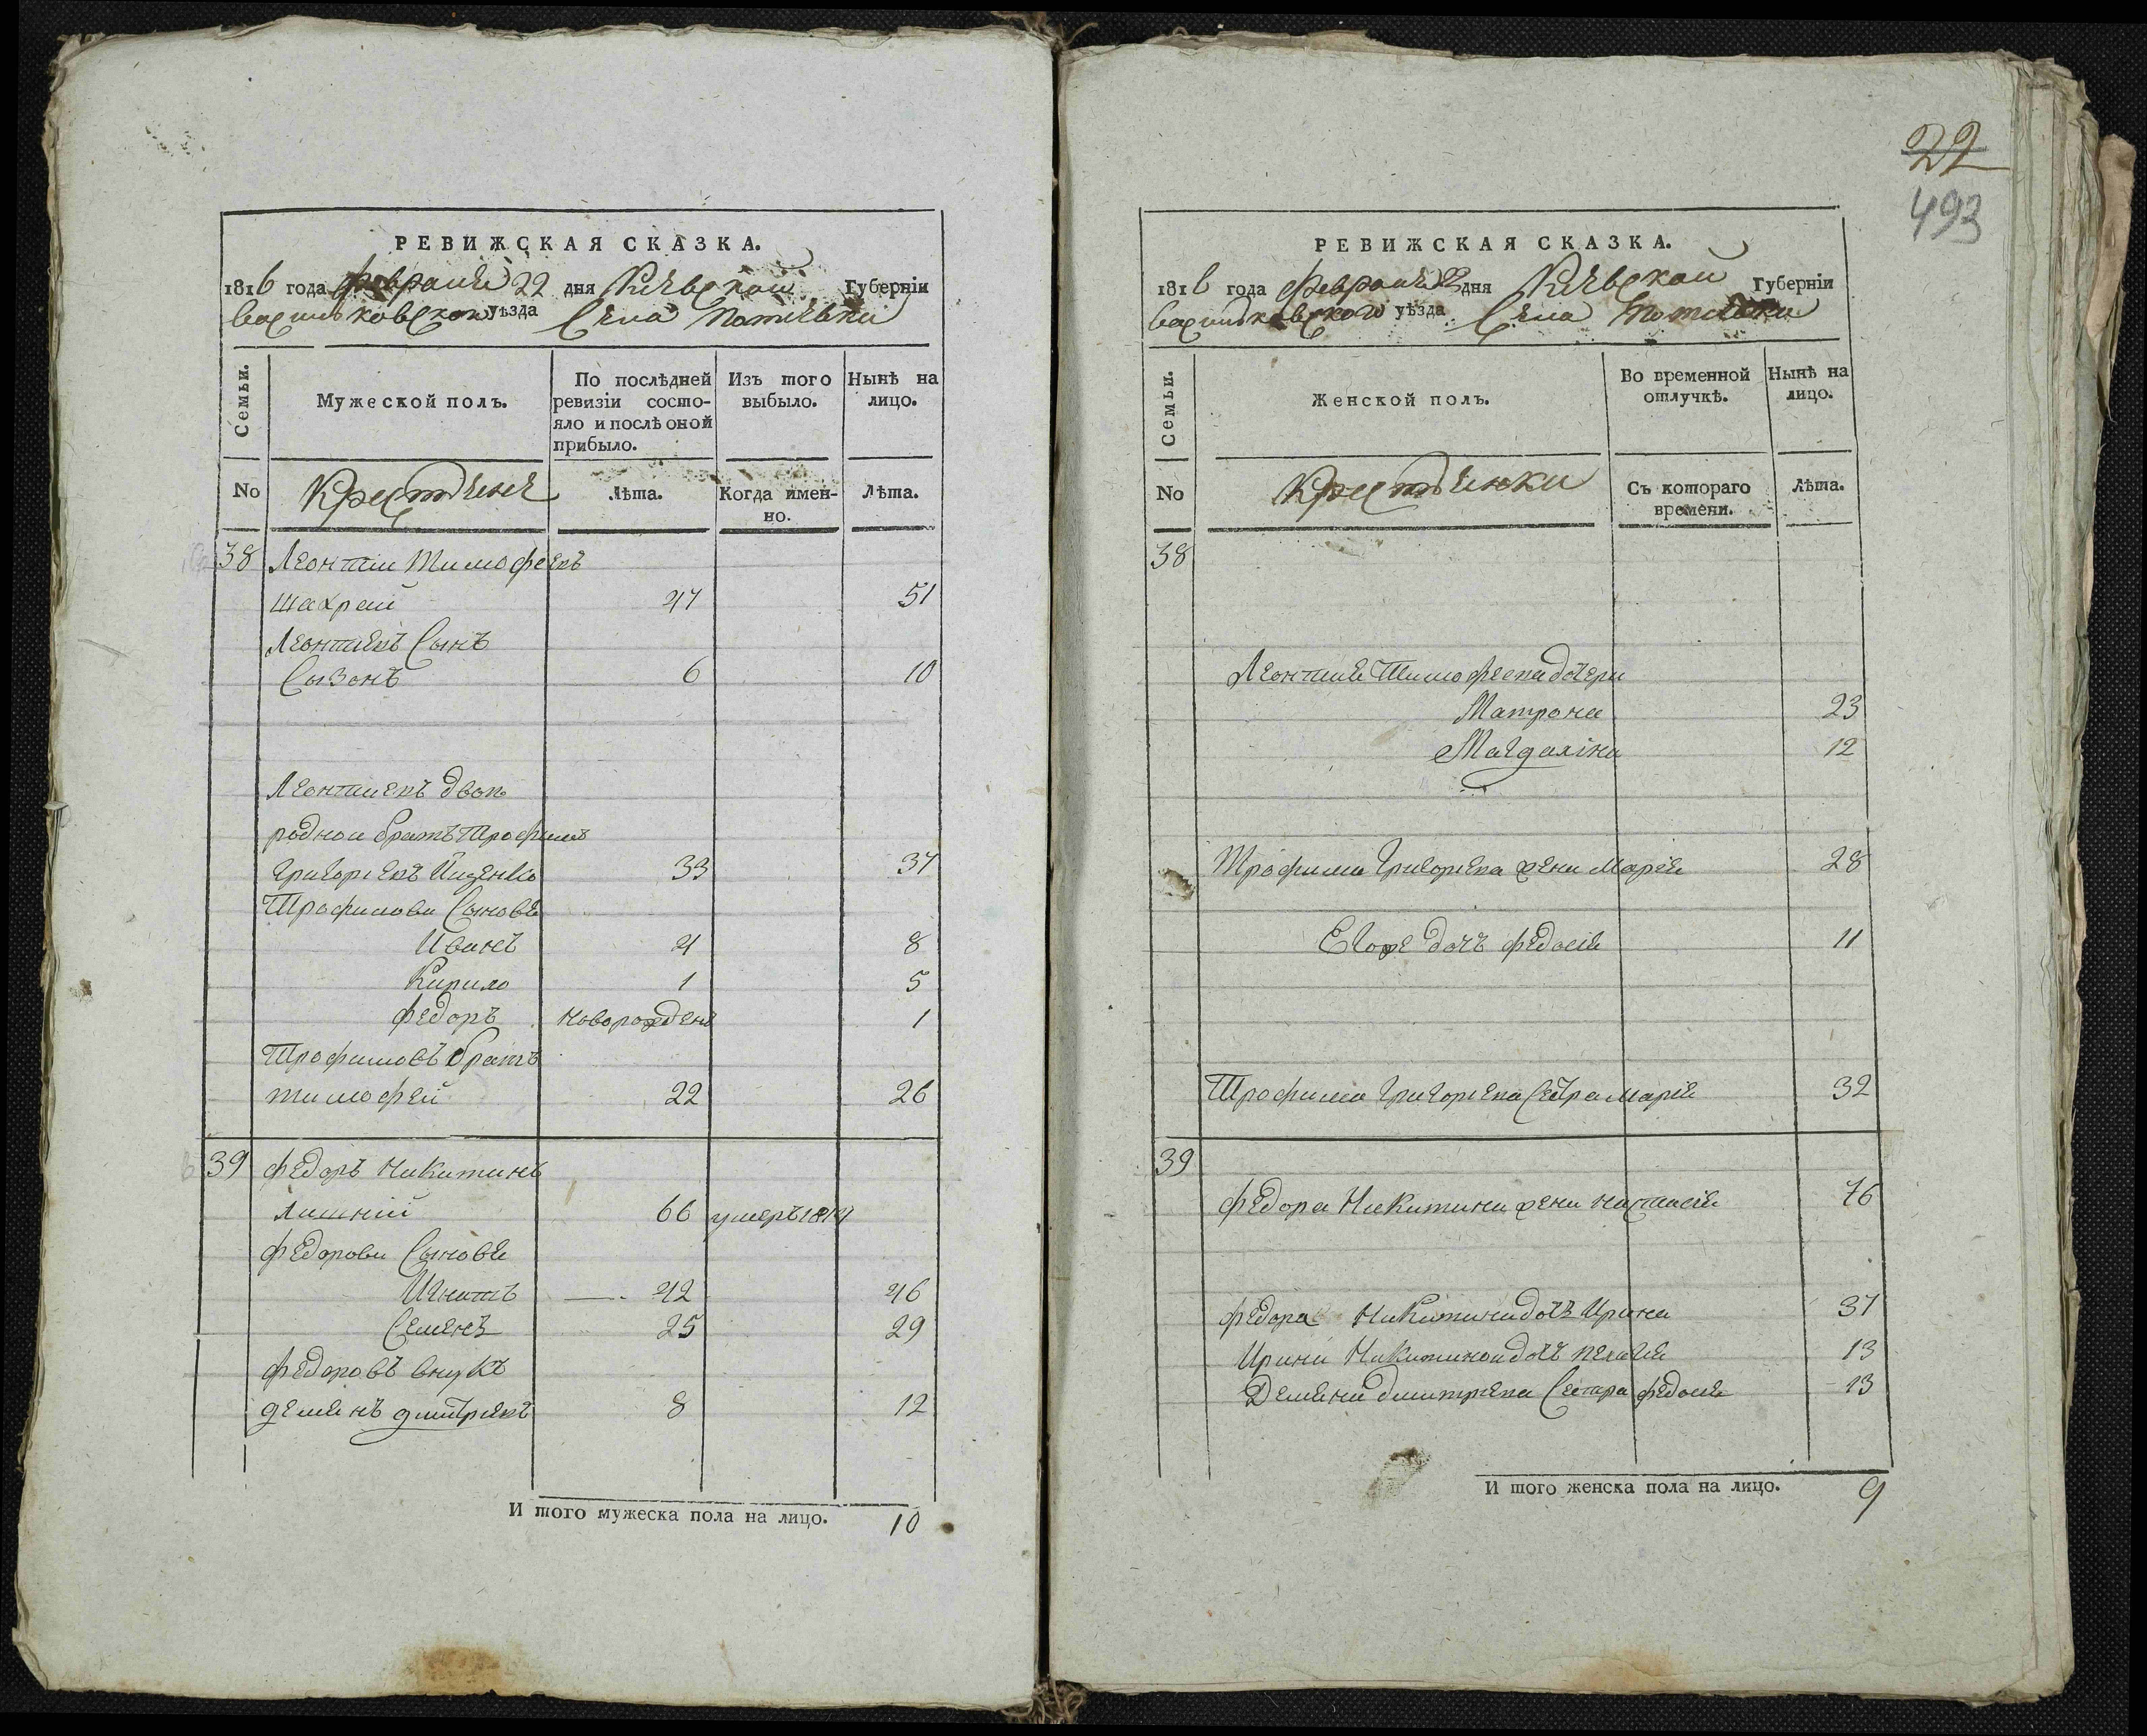 РЕВИЖСКАЯ СКАЗКА.
1816 года февраля 22 дня Кіевской Губерніи
васильковского уѣзда Села Потіевки
Семьи.
Мужеской полъ.
По послѣдней ревизіи состояло и послѣ оной прибыло.
Изъ того выбыло.
Нынѣ на лицо.
No
Крестяне
Лѣта.
Когда именно.
Лѣта.
38 Леонтии Тимофеевъ
шахрай 47 51
Леонтиевъ Сынъ
Сызонъ 6 10
Леонтиевъ двою
родной братъ Трофимъ
Григориевъ 33 37
Трофимови Сыновя
Иванъ 4 8
Кирило 1 5
федоръ новорожденъ 1
Трофимовъ братъ
тимофей 22 26
39 федоръ Никитинъ
Лишний 66 умеръ 1814
федорови Сыновя
Игнатъ 42 46
Семенъ 25 29
федоровъ внукъ
демянъ дмитриевъ 8 12
И того мужеска пола на лицо. 10
22
493
РЕВИЖСКАЯ СКАЗКА.
1816 года февраля 22 дня Кіевской Губерніи
васильковского уѣзда Села Потіевки
Семьи.
Женской полъ.
Во временной отлучкѣ.
Нынѣ на лицо.
No
Крестянки
Съ котораго времени.
Лѣта.
38
Леонтия Тимофеева дочери
Матрона 23
Магдалина 12
Трофима Григориева жена Мария 28
Егоже дочъ федосия 11
Трофима Григориева Сестра мария 32
39
федора Никитина жена настасия 76
федора Никитина дочъ Ирина 37
Ирини Никитиной дочъ пелагия 13
Демяна дмитриева Сестра федосия 13
И того женска пола на лицо. 9